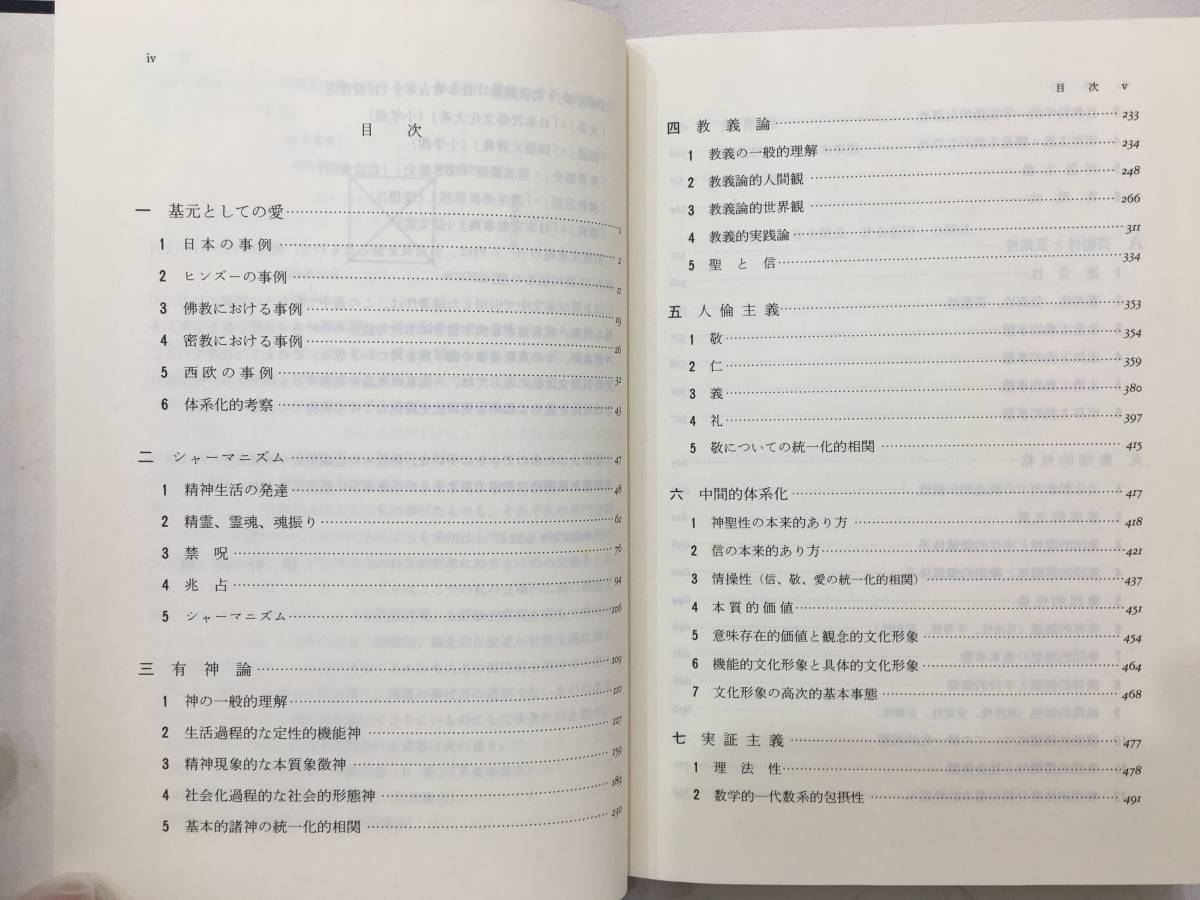 iv
目 次
一 基元としての愛 1
1 日本の事例 2
2 ヒンズーの事例 11
3 佛教における事例 19
4 密教における事例 26
5 西欧の事例 32
6 体系化的考察 43
二 シャーマニズム 47
1 精神生活の発達 48
2 精霊、霊魂、魂振り 62
3 禁呪 76
4 兆占 94
5 シャーマニズム 106
三 有神論 109
1 神の一般的理解 110
2 生活過程的な定性的機能神 127
3 精神現象的な本質象徴神 159
4 社会化過程的な社会的形態神 189
5 基本的諸神の統一化的相関 230
目 次 v
四 教義論 233
1 教義の一般的理解 234
2 教義論的人間観 248
3 教義論的世界観 266
4 教義的実践論 311
5 聖と信 334
五 人倫主義 353
1 敬 354
2 仁 359
3 義 380
4 礼 397
5 敬についての統一化的相関 415
六 中間的体系化 417
1 神聖性の本来的あり方 418
2 信の本来的あり方 421
3 情操性（信、敬、愛の統一化的相関） 437
4 本質的価値 451
5 意味存在的価値と観念的文化形象 454
6 機能的文化形象と具体的文化形象 464
7 文化形象の高次的基本事態 468
七 実証主義 477
1 理法性 478
2 数学的―代数系的包摂性 491